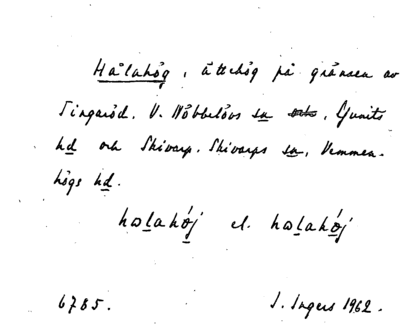 Hålahög, ättehög på gränsen av
Singaröd, V. Nöbbelövs sn, Ljunits
hd och Skivarp, Skivarps sn, Vemmen-
högs hd.
hωlahǿj el. hωlahǿj
6785. I. Ingers 1962.